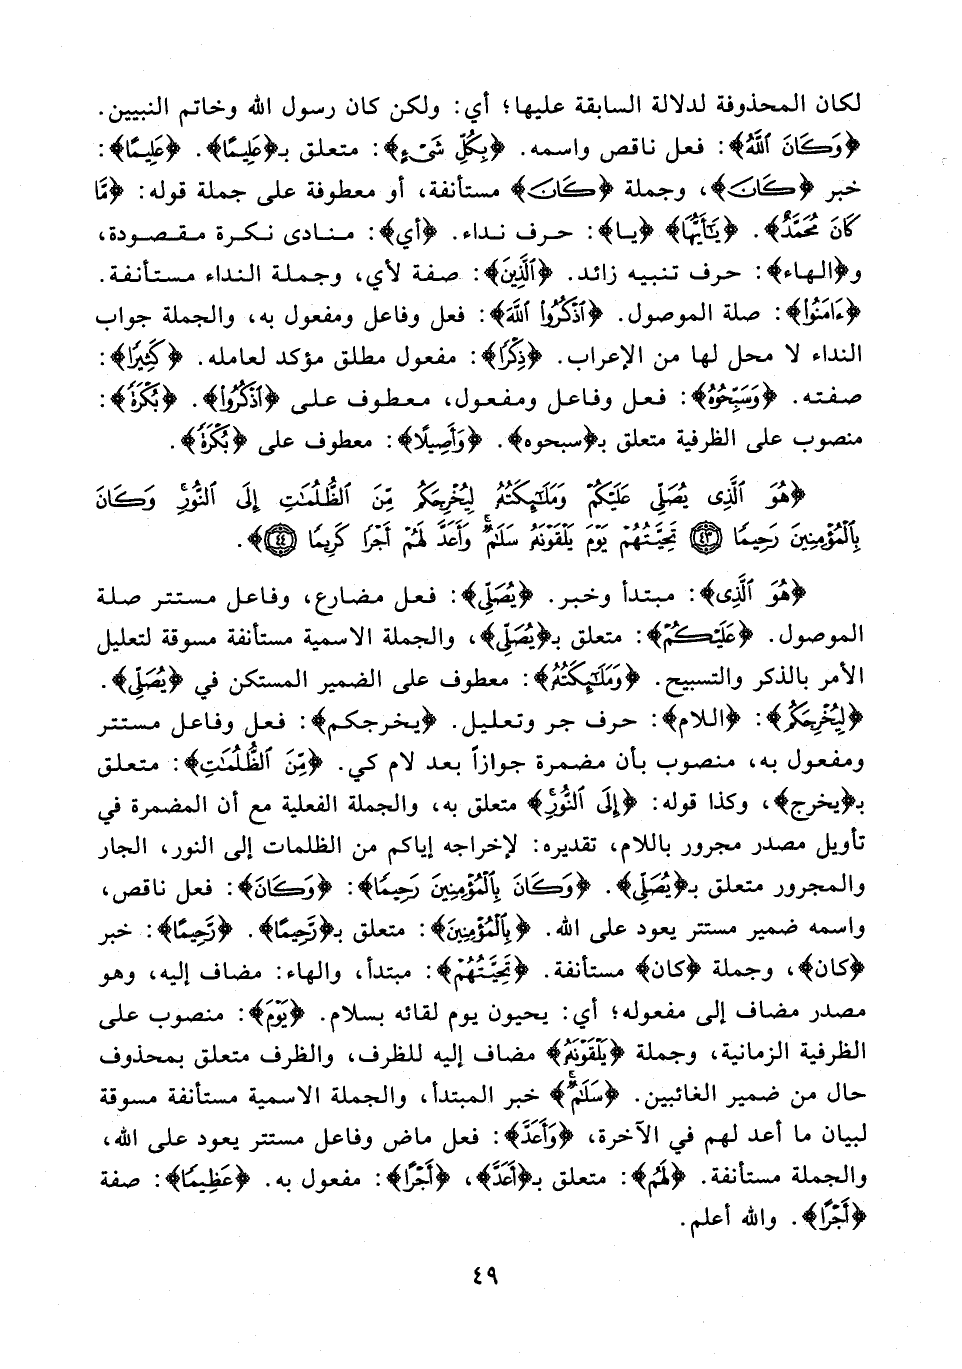 لكان المحذوفة لدلالة السابقة عليها؛ أي: ولكن كان رسول الله وخاتم النبيين.
﴿وَكَانَ ٱللَّهُ﴾: فعل ناقص واسمه. ﴿بِكُلِّ شَىْءٍ﴾: متعلق بـ﴿عَلِيمًا﴾. ﴿عَلِيمًا﴾:
خبر ﴿كَانَ﴾، وجملة ﴿كَانَ﴾ مستأنفة، أو معطوفة على جملة قوله: ﴿مَّا
كَانَ مُحَمَّدٌ﴾. ﴿يَٰٓأَيُّهَا﴾ ﴿يا﴾: حرف نداء. ﴿أي﴾: منادى نكرة مقصودة،
و﴿الهاء﴾: حرف تنبيه زائد. ﴿ٱلَّذِينَ﴾: صفة لأي، وجملة النداء مستأنفة.
﴿ءَامَنُوا۟﴾: صلة الموصول. ﴿ٱذْكُرُوا۟ ٱللَّهَ﴾: فعل وفاعل ومفعول به، والجملة جواب
النداء لا محل لها من الإعراب. ﴿ذِكْرًا﴾: مفعول مطلق مؤكد لعامله. ﴿كَثِيرًا﴾:
صفته. ﴿وَسَبِّحُوهُ﴾: فعل وفاعل ومفعول، معطوف على ﴿ٱذْكُرُوا۟﴾. ﴿بُكْرَةً﴾:
منصوب على الظرفية متعلق بـ﴿سبحوه﴾. ﴿وَأَصِيلًا﴾: معطوف على ﴿بُكْرَةً﴾.
﴿هُوَ ٱلَّذِى يُصَلِّى عَلَيْكُمْ وَمَلَٰٓئِكَتُهُۥ لِيُخْرِجَكُم مِّنَ ٱلظُّلُمَٰتِ إِلَى ٱلنُّورِ ۚ وَكَانَ
بِٱلْمُؤْمِنِينَ رَحِيمًا ٤٣ تَحِيَّتُهُمْ يَوْمَ يَلْقَوْنَهُۥ سَلَٰمٌ ۚ وَأَعَدَّ لَهُمْ أَجْرًا كَرِيمًا ٤٤﴾.
﴿هُوَ ٱلَّذِى﴾: مبتدأ وخبر. ﴿يُصَلِّى﴾: فعل مضارع، وفاعل مستتر صلة
الموصول. ﴿عَلَيْكُمْ﴾: متعلق بـ﴿يُصَلِّى﴾، والجملة الاسمية مستأنفة مسوقة لتعليل
الأمر بالذكر والتسبيح. ﴿وَمَلَٰٓئِكَتُهُۥ﴾: معطوف على الضمير المستكن في ﴿يُصَلِّى﴾.
﴿لِيُخْرِجَكُم﴾: ﴿اللام﴾: حرف جر وتعليل. ﴿يخرجكم﴾: فعل وفاعل مستتر
ومفعول به، منصوب بأن مضمرة جوازاً بعد لام كي. ﴿مِّنَ ٱلظُّلُمَٰتِ﴾: متعلق
بـ﴿يخرج﴾، وكذا قوله: ﴿إِلَى ٱلنُّورِ ۚ﴾ متعلق به، والجملة الفعلية مع أن المضمرة في
تأويل مصدر مجرور باللام، تقديره: لإخراجه إياكم من الظلمات إلى النور، الجار
والمجرور متعلق بـ﴿يُصَلِّى﴾. ﴿وَكَانَ بِٱلْمُؤْمِنِينَ رَحِيمًا﴾: ﴿وَكَانَ﴾: فعل ناقص،
واسمه ضمير مستتر يعود على الله. ﴿بِٱلْمُؤْمِنِينَ﴾: متعلق بـ﴿رَّحِيمًا﴾. ﴿رَّحِيمًا﴾: خبر
﴿كان﴾، وجملة ﴿كان﴾ مستأنفة. ﴿تَحِيَّتُهُمْ﴾: مبتدأ، والهاء: مضاف إليه، وهو
مصدر مضاف إلى مفعوله؛ أي: يحيون يوم لقائه بسلام. ﴿يَوْمَ﴾: منصوب على
الظرفية الزمانية، وجملة ﴿يَلْقَوْنَهُۥ﴾ مضاف إليه للظرف، والظرف متعلق بمحذوف
حال من ضمير الغائبين. ﴿سَلَٰمٌ ۚ﴾ خبر المبتدأ، والجملة الاسمية مستأنفة مسوقة
لبيان ما أعد لهم في الآخرة، ﴿وَأَعَدَّ﴾: فعل ماض وفاعل مستتر يعود على الله،
والجملة مستأنفة. ﴿لَهُمْ﴾: متعلق بـ﴿أَعَدَّ﴾، ﴿أَجْرًا﴾: مفعول به. ﴿عَظِيمًا﴾: صفة
﴿أَجْرًا﴾. والله أعلم.
٤٩